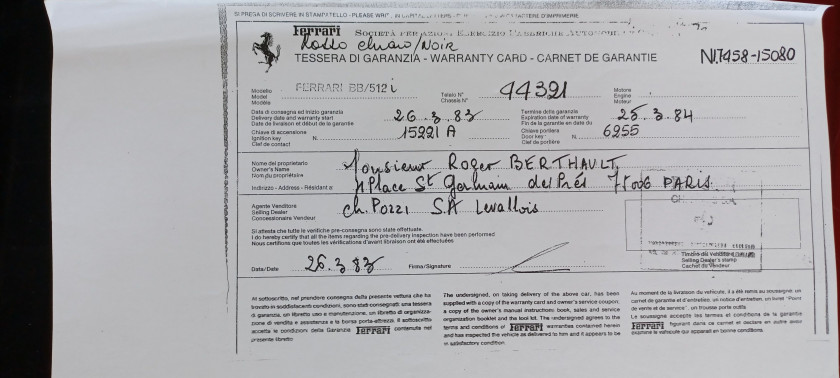 SI PREGA DI SCRIVERE IN STAMPATELLO - PLEASE WRITE IN CAPITAL LETTERS - CARATTERE D'IMPRIMERIE
Ferrari SOCIETÀ PER AZIONI ESERCIZIO FABBRICHE AUTOMOBILI
Rosso chiaro/Noir
TESSERA DI GARANZIA - WARRANTY CARD - CARNET DE GARANTIE
Modello
Model
Modèle
FERRARI BB/512 i
Telaio N°
Chassis N°
44321
Motore
Engine
Moteur
Data di consegna ed inizio garanzia
Delivery date and warranty start
Date de livraison et début de la garantie
26.3.83
Termine della garanzia
Expiration date of warranty
Fin de la garantie en date du
25.3.84
Chiave di accensione
Ignition key
Clef de contact
N.
15221 A
Chiave portiera
Door key
Clef de portière
N.
6255
Nome del proprietario
Owner's Name
Nom du propriétaire
Monsieur Roger BERTHAULT
Indirizzo - Address - Résidant a:
Place St Germain des Prés 75006 PARIS
Agente Venditore
Selling Dealer
Concessionaire Vendeur
ch. POZZI S.A Levallois
Si attesta che tutte le verifiche pre-consegna sono state effettuate.
I do hereby certify that all the items regarding the pre-delivery inspection have been performed
Nous certifions que toutes les vérifications d'avant livraison ont été effectuées
Data/Date
26.3.83
Firma/Signature
Timbro del venditore
Selling Dealer's stamp
Cachet du Vendeur
Il sottoscritto, nel prendere consegna della presente vettura che ha
trovato in soddisfacenti condizioni, sono stati consegnati: una tessera
di garanzia, un libretto uso e manutenzione, un libretto di organizza-
zione di vendita e assistenza e la borsa porta-attrezzi. Il sottoscritto
accetta le condizioni della Garanzia Ferrari contenuta nel
presente libretto
The undersigned, on taking delivery of the above car, has been
supplied with a copy of the warranty card and owner's service coupon,
a copy of the owner's manual instructions book, sales and service
organization booklet and the tool kit. The undersigned agrees to the
terms and conditions of Ferrari warranties contained herein
and has inspected the vehicle as delivered to him and it appears to be
in satisfactory condition.
Au moment de la livraison du véhicule, il a été remis au soussigné: un
carnet de garantie et d'entretien, un notice d'entretien, un livret "Point
de vente et de service", un trousse porte outils
Le soussigné accepte les termes et conditions de la garantie
Ferrari figurant dans ce carnet et déclare en outre avoir
examiné le véhicule qui apparait en bonne conditions.